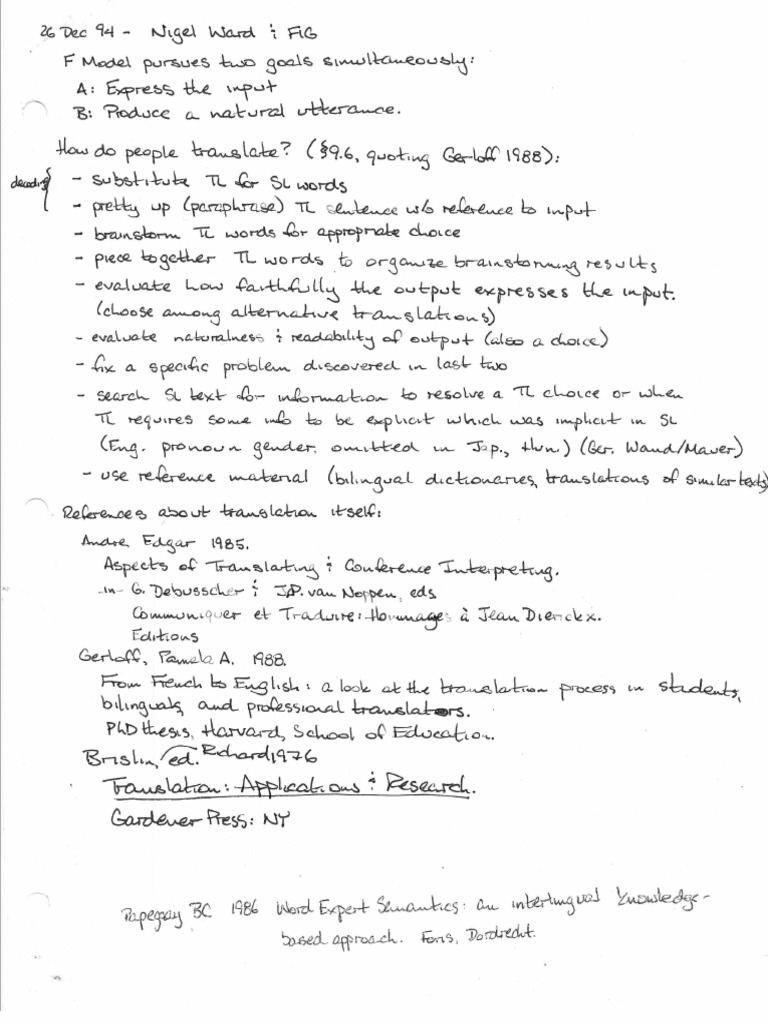 26 Dec 94 - Nigel Ward & FIG
F Model pursues two goals simultaneously:
A: Express the input
B: Produce a natural utterance.
How do people translate? (§9.6, quoting Gerloff 1988):
decoding { - substitute TL for SL words
- pretty up (paraphrase) TL sentence w/o reference to input
- brainstorm TL words for appropriate choice
- piece together TL words to organize brainstorming results
- evaluate how faithfully the output expresses the input.
(choose among alternative translations)
- evaluate naturalness & readability of output (also a choice)
- fix a specific problem discovered in last two
- search SL text for information to resolve a TL choice or when
TL requires some info to be explicit which was implicit in SL
(Eng. pronoun gender, omitted in Jap., Hun.) (Ger. Wand/Mauer)
- use reference material (bilingual dictionaries, translations of similar texts)
References about translation itself:
Andre, Edgar 1985.
Aspects of Translating & Conference Interpreting.
in G. Debusscher & J.P. van Noppen, eds
Communiquer et Traduire: Hommages à Jean Dierickx.
Editions
Gerloff, Pamela A. 1988.
From French to English: a look at the translation process in students,
bilinguals, and professional translators.
PhD thesis, Harvard, School of Education.
Brislin, ed. Richard 1976
Translation: Applications & Research.
Gardener Press: NY
Papegaay BC 1986 Word Expert Semantics: an interlingual knowledge-
based approach. Foris, Dordrecht.